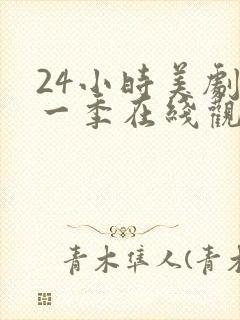 24小時美劇
一季在綫觀
青木隼人(青木